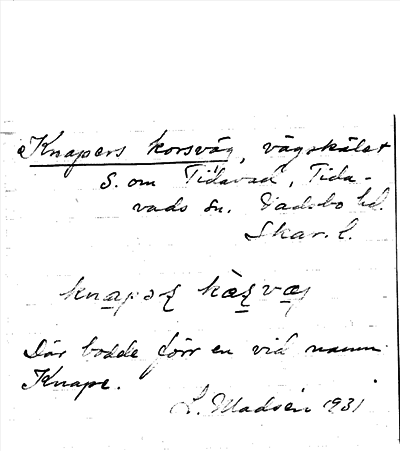 Knapers korsväg, vägskälet
S. om Tidavad, Tida-
vads sn. Vadsbo hd.
Skar. l.
Där bodde förr en vid namn
Knape.
L. Madsén 1931